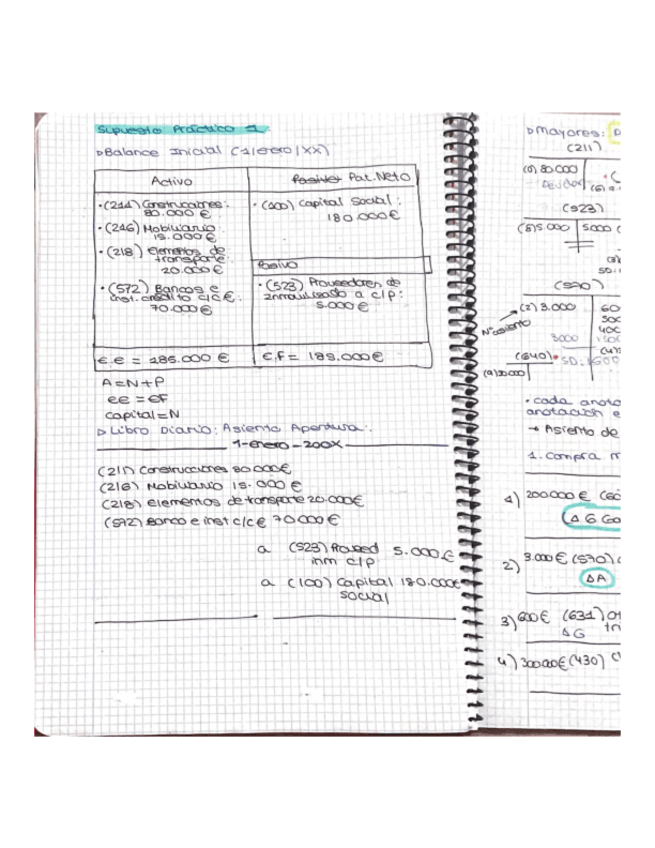 Supuesto Práctico 1:
▷Balance Inicial (1/enero/XX)
Activo
Pasivo Pat. Neto
•(211) Construcciones:
80.000€
•(216) Mobiliario:
15.000€
•(218) Elementos de
transporte:
20.000€
•(572) Bancos e
inst. crédito c/c €:
70.000€
•(100) Capital Social:
180.000€
Pasivo
•(523) Proveedores de
inmovilizado a c/p:
5.000€
E.E = 185.000 €
E.F = 185.000€
A=N+P
EE = EF
capital=N
▷Libro Diario: Asiento Apertura:
1-enero-200X
(211) Construcciones 80.000€
(216) Mobiliario 15.000€
(218) Elementos de transporte 20.000€
(572) Banco e inst c/c € 70.000€
a (523) Proveed 5.000€
inm c/p
a (100) Capital 180.000€
social
▷Mayores:
(211)
(a) 80.000
Deudor
(523)
(8) 5.000
5.000
(570)
(2) 3.000
Nº asiento
3000
(640)
SD:
(9) 20.000
• cada anota
anotación e
→ Asiento de
1. Compra m
1) 200.000€ (60
Δ G Go
2) 3.000€ (570)
ΔA
3) 600€ (631) ot
ΔG tr
4) 300.000€ (430)